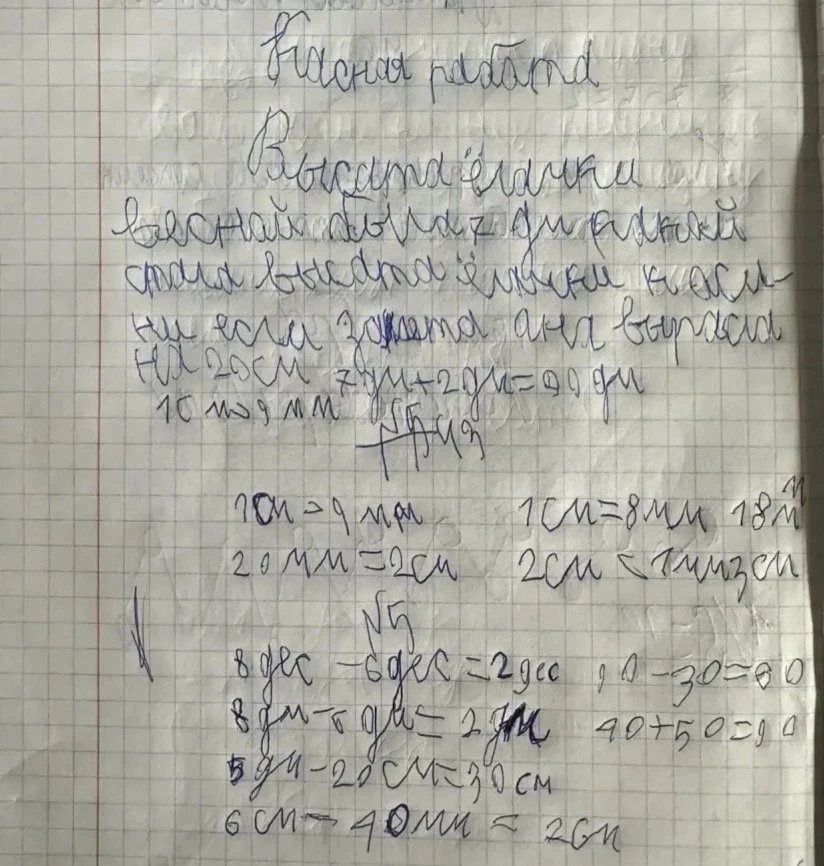 Касная работа
Высата ёлачки
весной была 7 дм какой
стала высата ёлачки к оси-
ни если за лето ана выраста
на 20 см 7 дм + 2 дм = 90 дм
1см > 9 мм
№5
1см > 9 мм 1см = 8мм 18м
20мм = 2см 2см < 1мм3см
№5
8дес - 6дес = 2дес 90-30=60
8дм - 6дм = 2дм 40+50=90
5дм - 20см = 30см
6см - 40мм = 2см